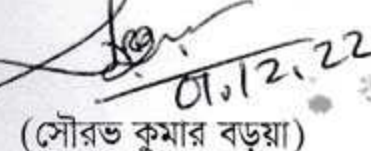 01.12.22
(সৌরভ কুমার বড়ুয়া)